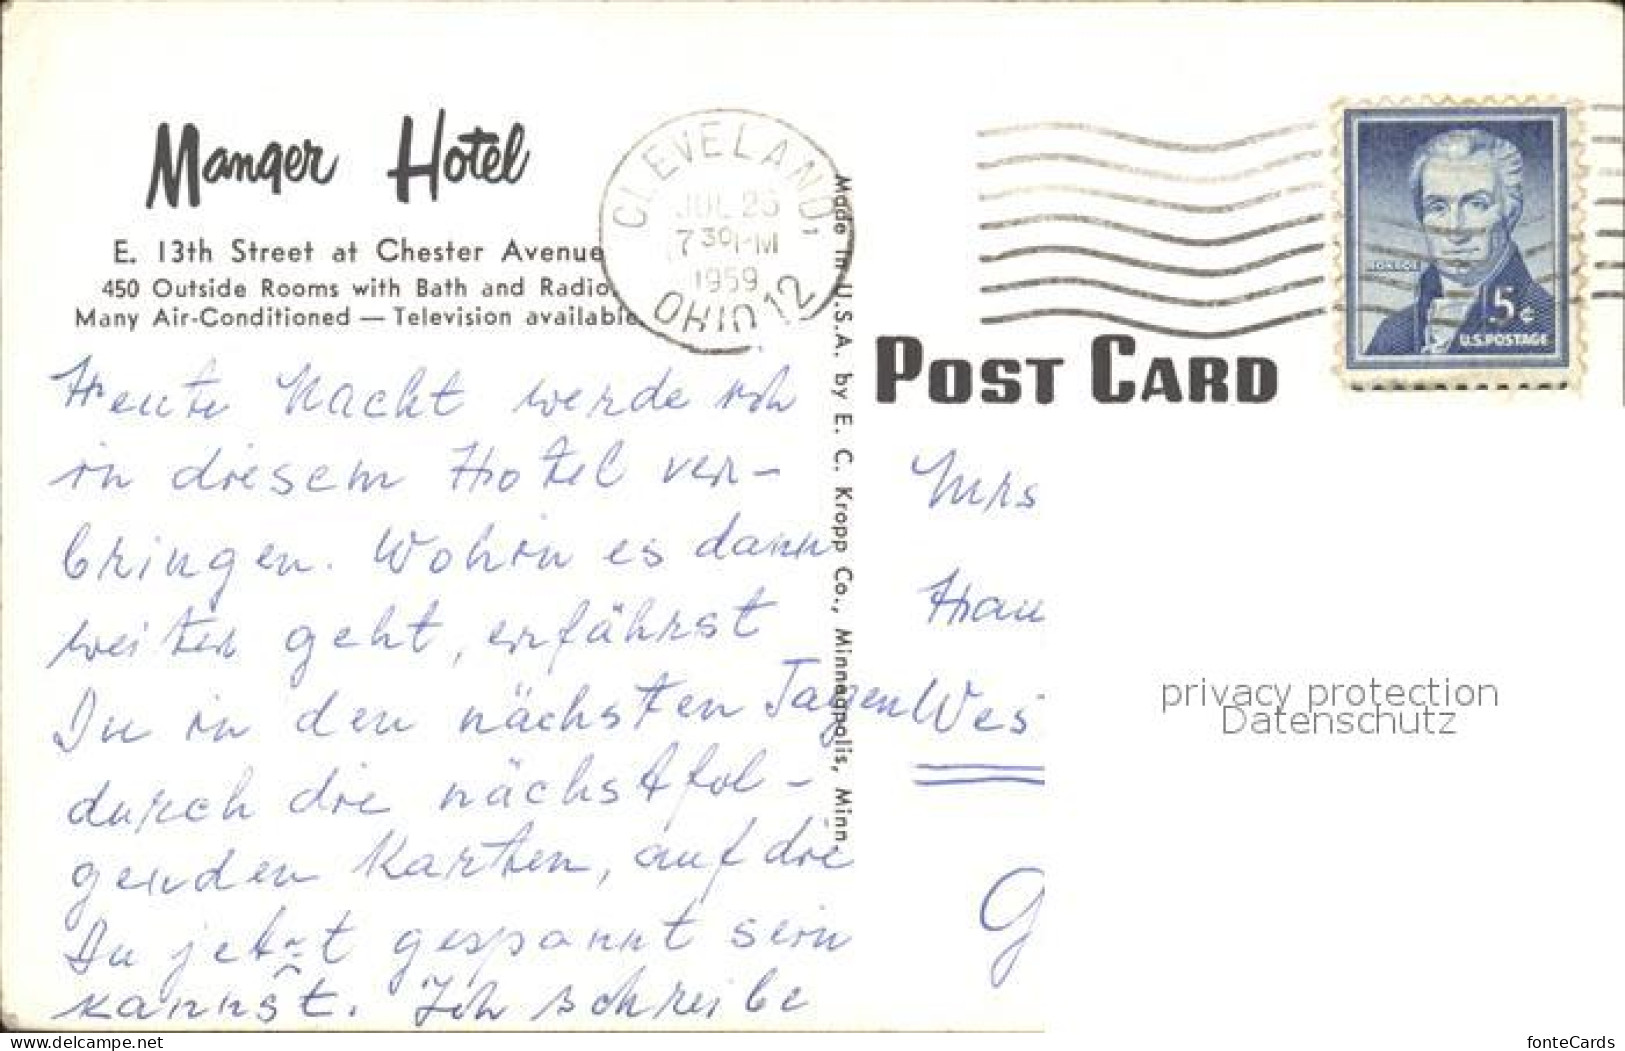 Manger Hotel
E. 13th Street at Chester Avenue
450 Outside Rooms with Bath and Radio
Many Air-Conditioned — Television available
CLEVELAND,
JUL 26
7 30 PM
1959
OHIO 12
MONROE
5¢
U.S. POSTAGE
POST CARD
Made in U.S.A. by E. C. Kropp Co., Minneapolis, Minn.
Heute Nacht werde ich
in diesem Hotel ver-
bringen. Wohin es dann
weiter geht, erfährst
Du in den nächsten Tagen
durch die nächstfol-
genden Karten, auf die
Du jetzt gespannt sein
kannst. Ich schreibe
Mrs
Hau
Wes
G
privacy protection
Datenschutz
www.delcampe.net
fonteCards